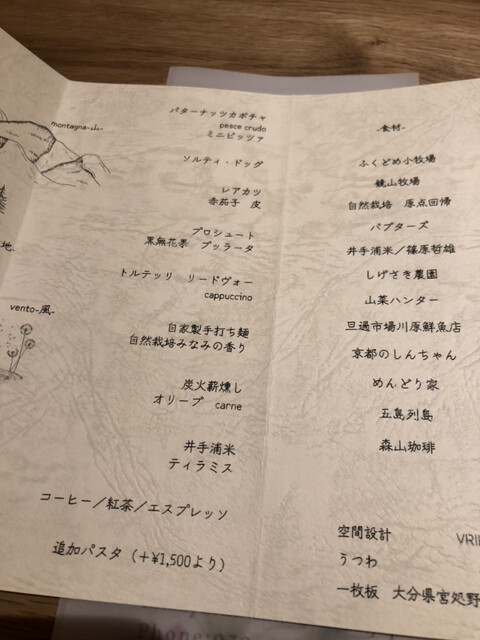 montagna-山-
地.
vento-風-
バターナッツカボチャ
pesce crudo
ミニピッツァ
ソルティ・ドッグ
レアカツ
赤茄子 皮
プロシュート
黒無花果 ブッラータ
トルテッリ リードヴォー
cappuccino
自家製手打ち麺
自然栽培みなみの香り
炭火薪燻し
オリーブ carne
井手浦米
ティラミス
コーヒー/紅茶/エスプレッソ
追加パスタ (+¥1,500より)
-食材-
ふくどめ小牧場
鏡山牧場
自然栽培 原点回帰
パプターズ
井手浦米/篠原哲雄
しげさき農園
山菜ハンター
旦過市場川原鮮魚店
京都のしんちゃん
めんどり家
五島列島
森山珈琲
空間設計 VRI
うつわ
一枚板 大分県宮処野